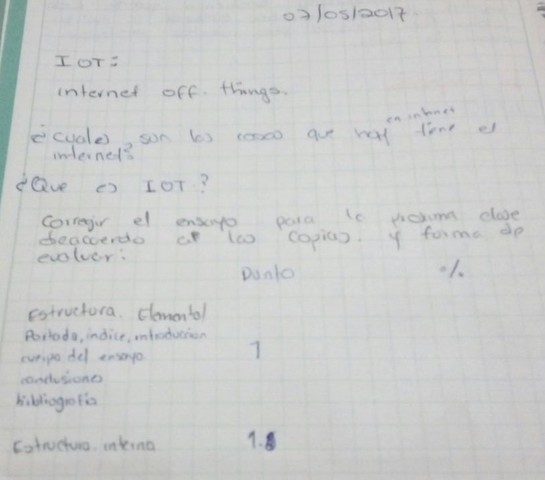 02/05/2017
IOT:
internet off. things.
en internet
¿cuales son las cosas que hay tiene el
internet?
¿Que es IOT?
Corregir el ensayo para la proxima clase
deacuerdo a las copias. y forma de
evaluer:
Punto %
Estructura. Elemental
Portada, indice, introduccion
cuerpo del ensayo 1
conclusiones
bibliografia
Estructura. interna 1.